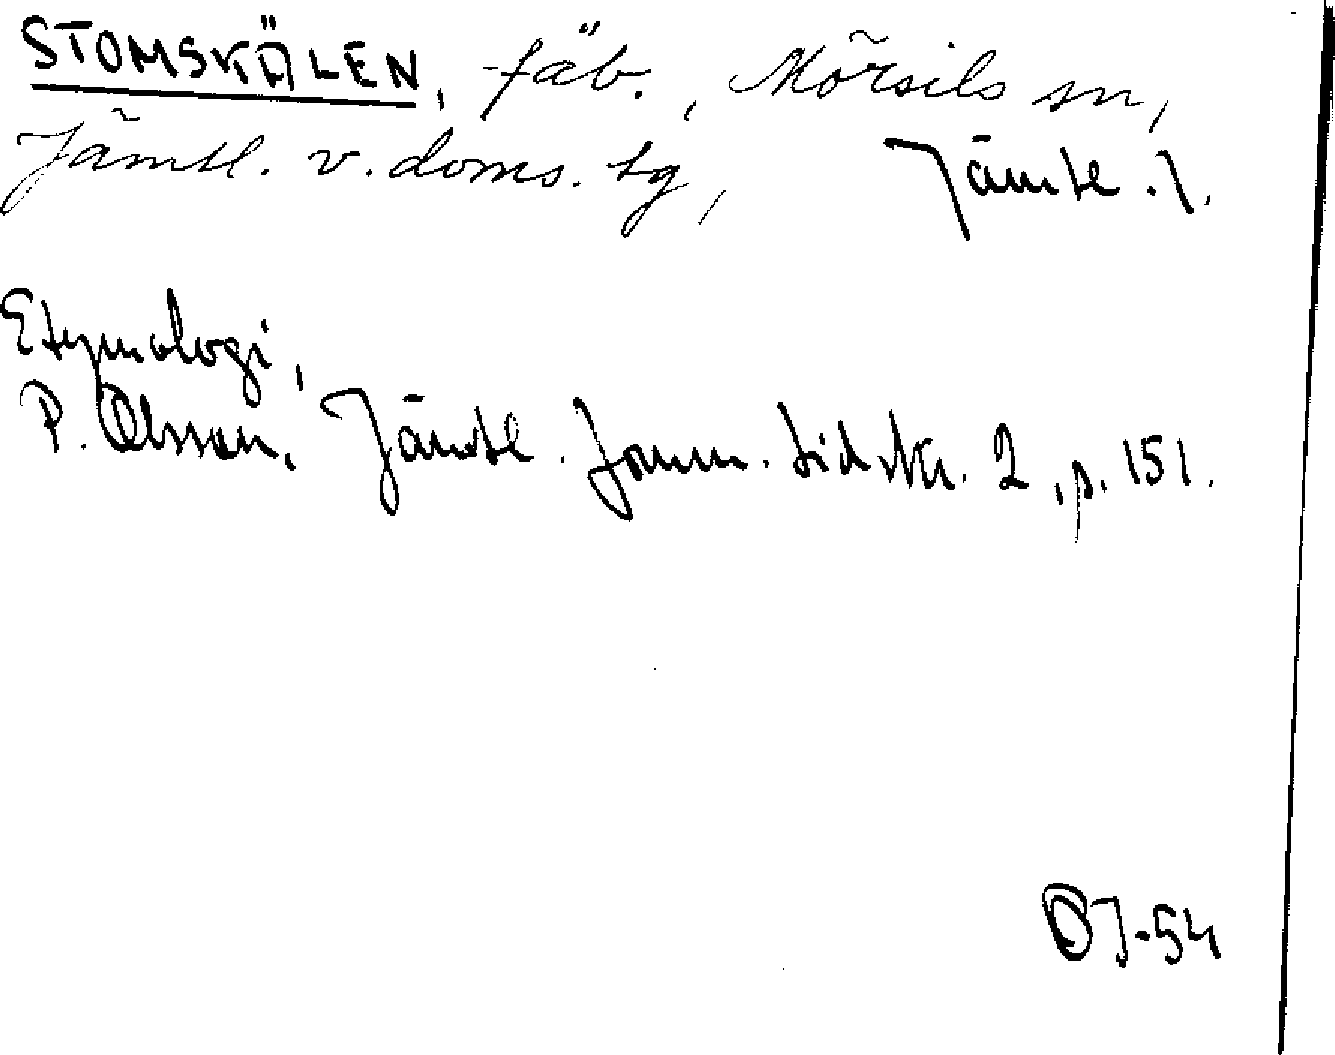 STOMSKÄLEN, fäb., Mörsils sn,
Jämtl. v. doms. tg, Jämtl. l.
Etymologi,
P. Olsson, Jämtl. fornm. tidskr. 2, p. 151.
OJ-54